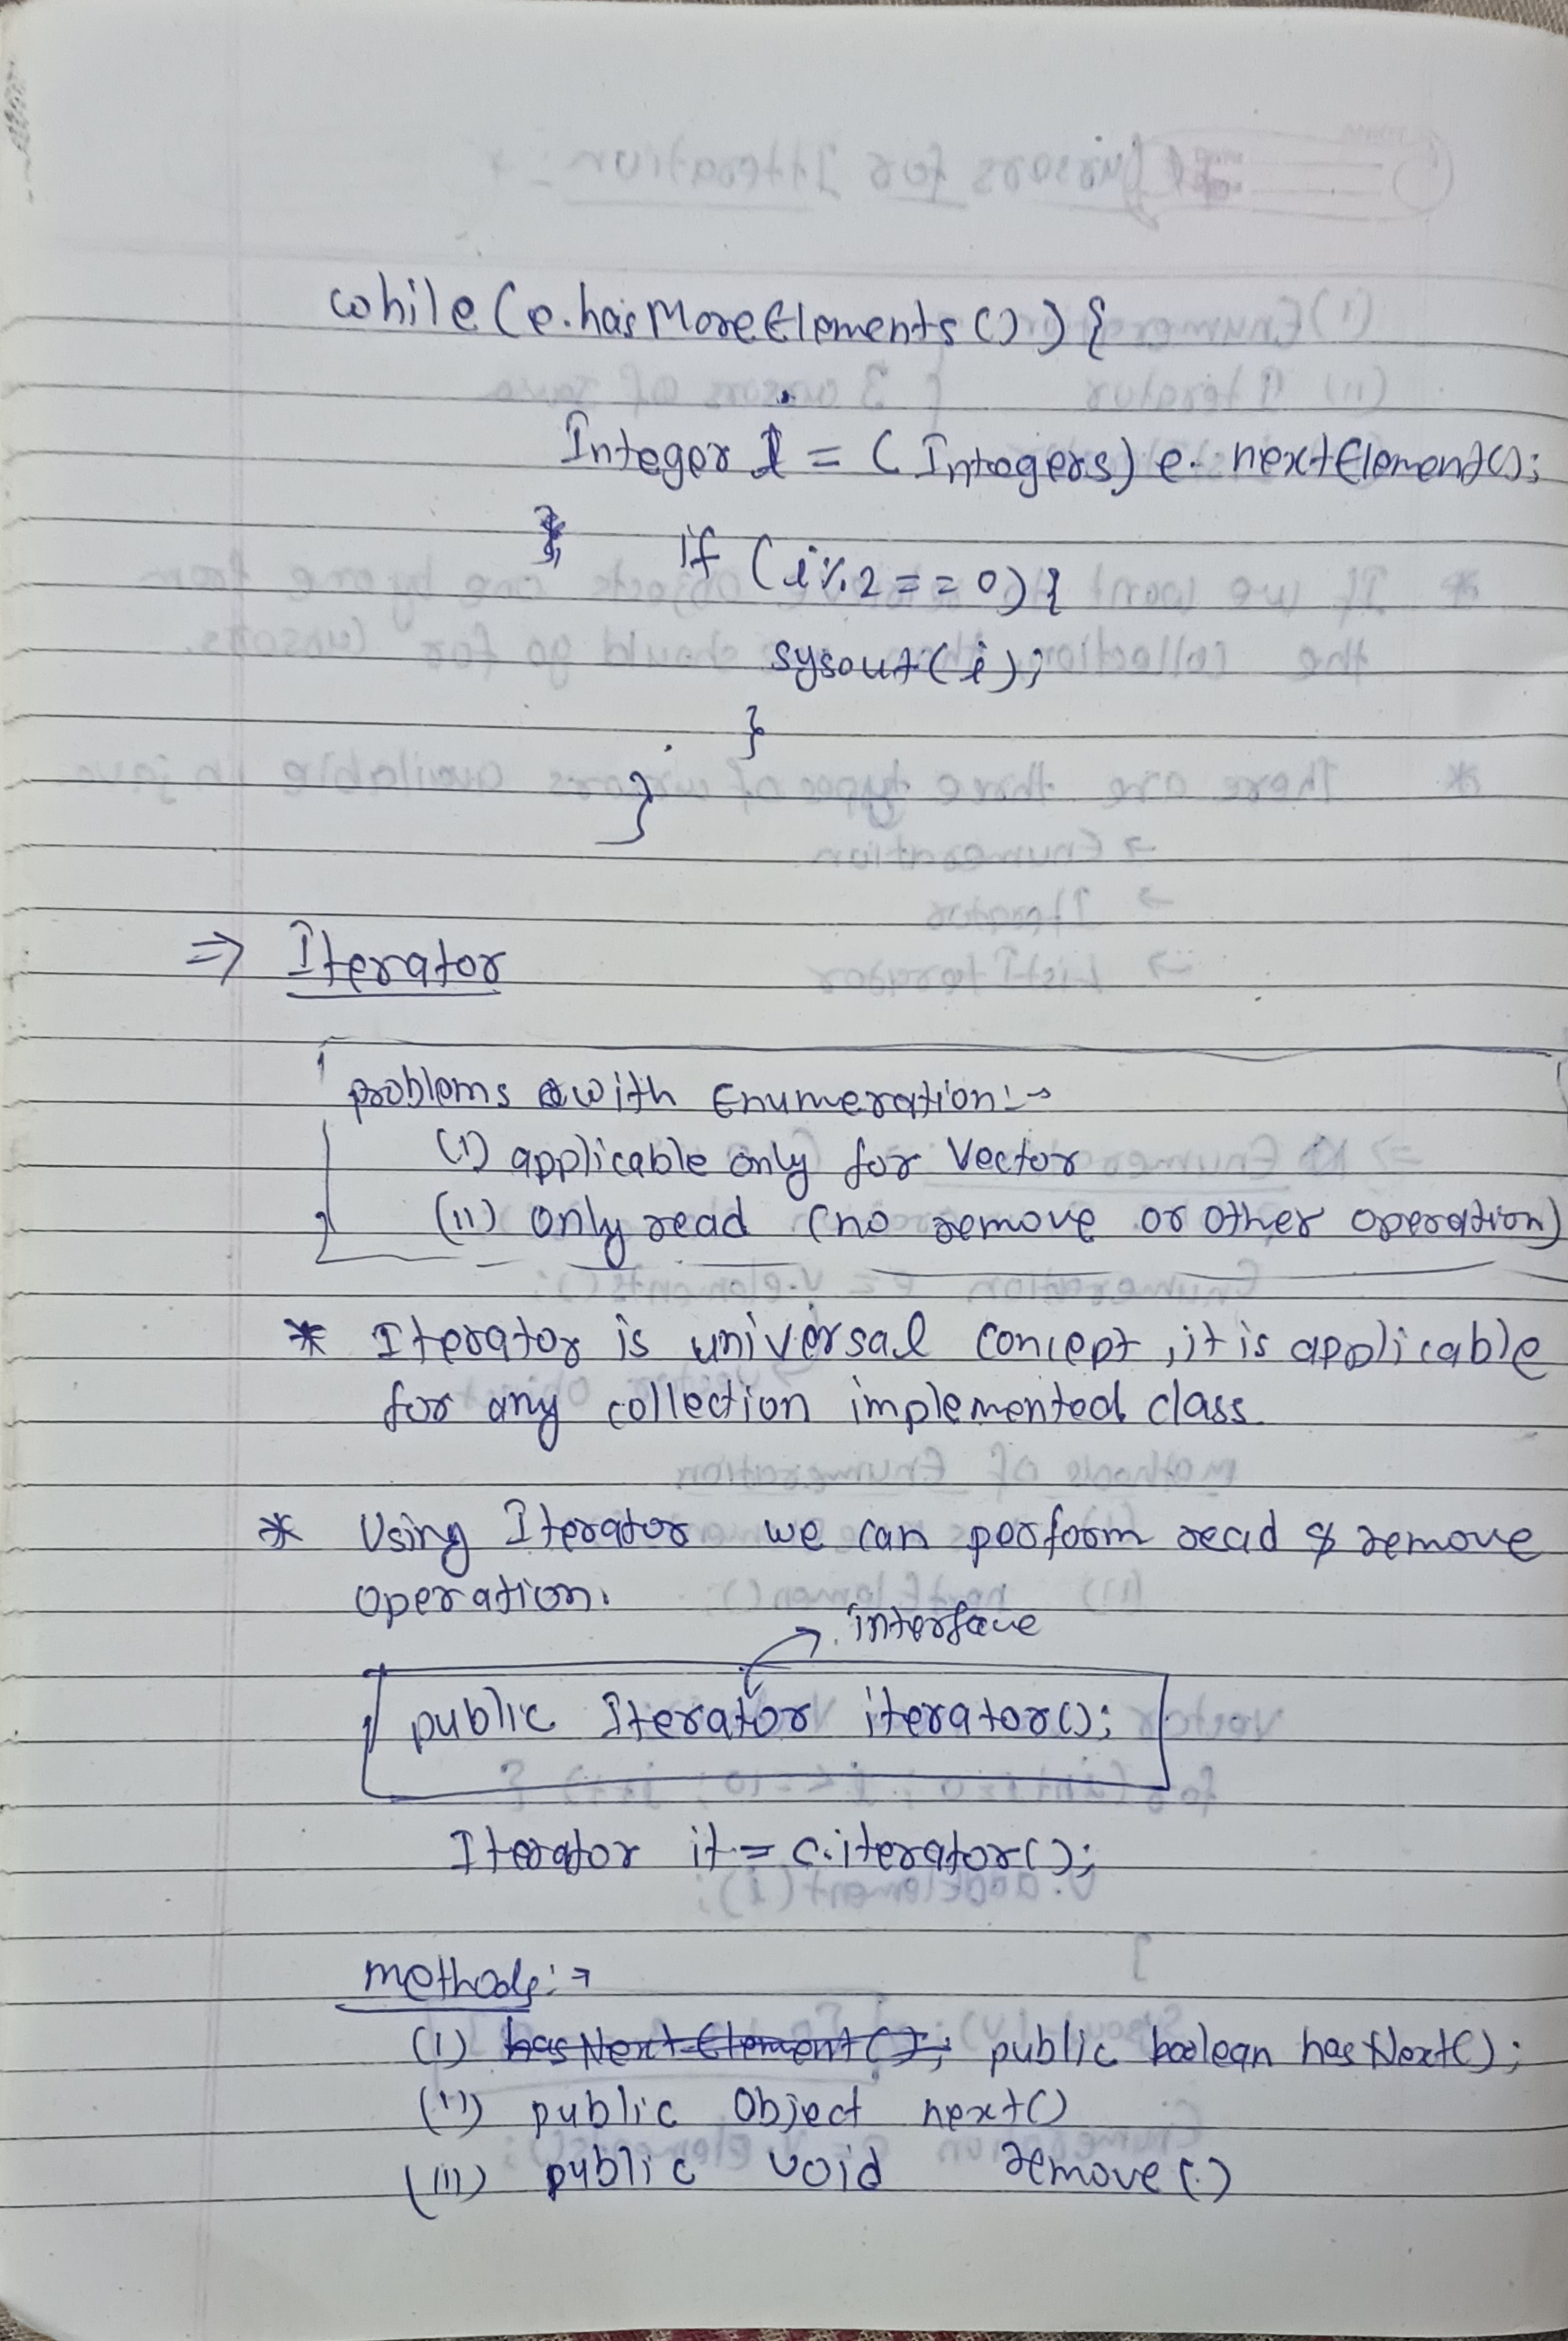 while(e.hasMoreElements()){
Integer I = (Integers) e. nextElement();
if (i%2==0){
sysout(i);
}
}
⇒ Iterator
problems with Enumeration:→
(i) applicable only for Vector
(ii) only read (no remove or other operation)
* Iterator is universal concept, it is applicable
for any collection implemented class.
* Using Iterator we can perform read & remove
operation.
interface
public Iterator iterator();
Iterator it = c.iterator();
methods:→
(i) hasNextElement(); public boolean hasNext();
(ii) public Object next()
(iii) public void remove()